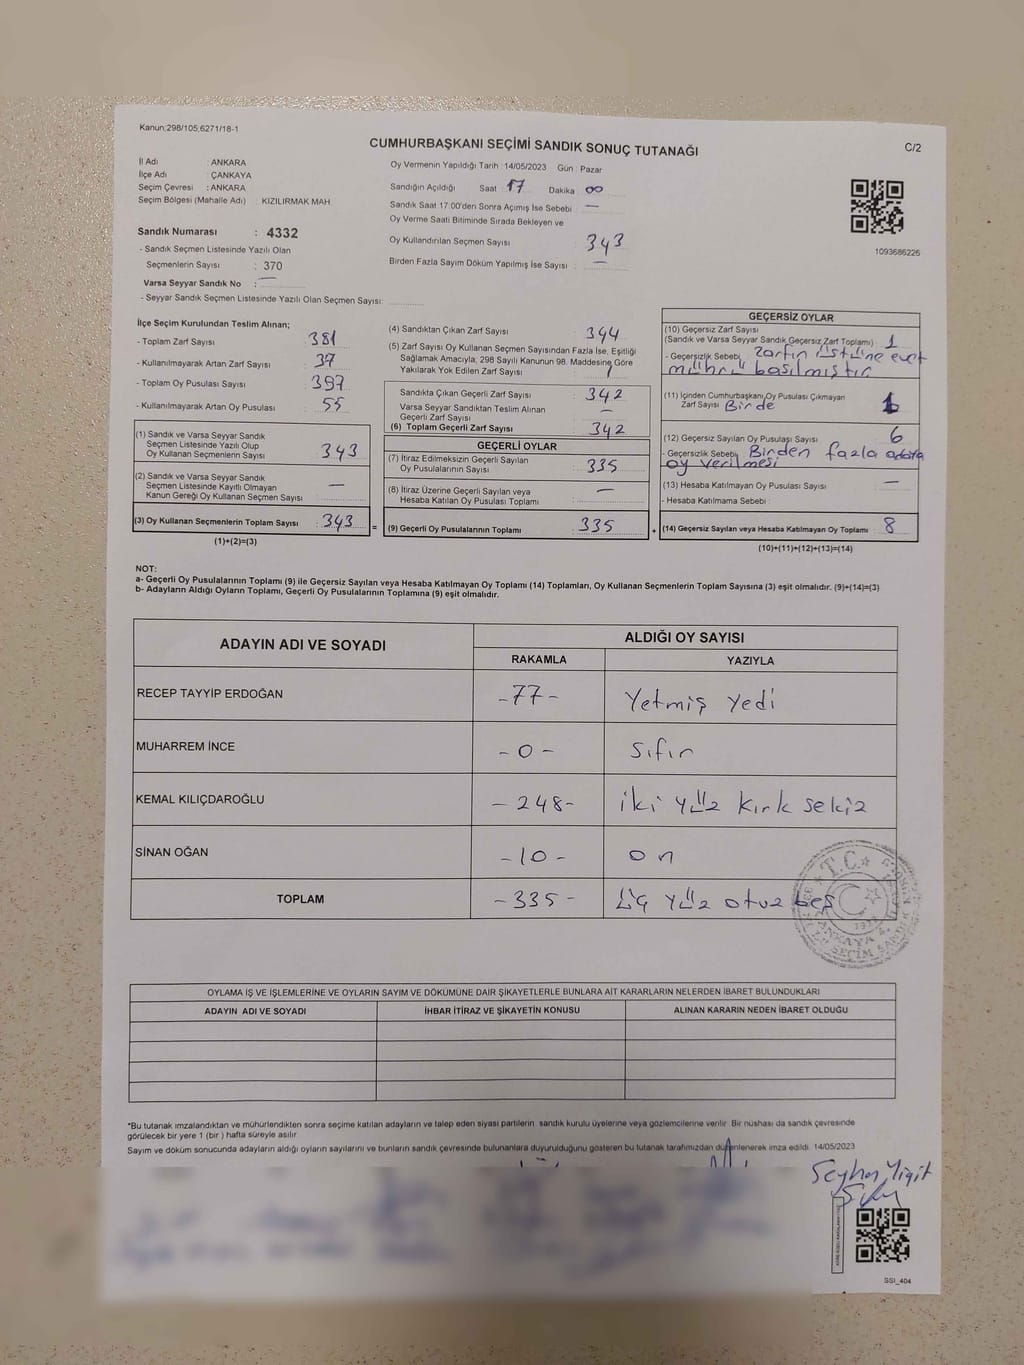 Kanun;298/105,6271/18-1
CUMHURBAŞKANI SEÇİMİ SANDIK SONUÇ TUTANAĞI
C/2
İl Adı : ANKARA
İlçe Adı : ÇANKAYA
Seçim Çevresi : ANKARA
Seçim Bölgesi (Mahalle Adı) : KIZILIRMAK MAH.
Sandık Numarası : 4332
- Sandık Seçmen Listesinde Yazılı Olan
Seçmenlerin Sayısı : 370
Varsa Seyyar Sandık No : —
- Seyyar Sandık Seçmen Listesinde Yazılı Olan Seçmen Sayısı:
Oy Vermenin Yapıldığı Tarih : 14/05/2023 Gün : Pazar
Sandığın Açıldığı Saat : 17 Dakika : 00
Sandık Saat 17.00'den Sonra Açımış İse Sebebi : —
Oy Verme Saati Bitiminde Sırada Bekleyen ve
Oy Kullandırılan Seçmen Sayısı : 343
Birden Fazla Sayım Döküm Yapılmış İse Sayısı : —
1093686226
İlçe Seçim Kurulundan Teslim Alınan;
- Toplam Zarf Sayısı : 381
- Kullanılmayarak Artan Zarf Sayısı : 37
- Toplam Oy Pusulası Sayısı : 397
- Kullanılmayarak Artan Oy Pusulası : 55
(1) Sandık ve Varsa Seyyar Sandık
Seçmen Listesinde Yazılı Olup
Oy Kullanan Seçmenlerin Sayısı : 343
(2) Sandık ve Varsa Seyyar Sandık
Seçmen Listesinde Kayıtlı Olmayan
Kanun Gereği Oy Kullanan Seçmen Sayısı : —
(3) Oy Kullanan Seçmenlerin Toplam Sayısı : 343
(1)+(2)=(3)
(4) Sandıktan Çıkan Zarf Sayısı : 344
(5) Zarf Sayısı Oy Kullanan Seçmen Sayısından Fazla İse, Eşitliği
Sağlamak Amacıyla, 298 Sayılı Kanunun 98. Maddesine Göre
Yakılarak Yok Edilen Zarf Sayısı : 1
Sandıkta Çıkan Geçerli Zarf Sayısı : 342
Varsa Seyyar Sandıktan Teslim Alınan
Geçerli Zarf Sayısı : —
(6) Toplam Geçerli Zarf Sayısı : 342
GEÇERLİ OYLAR
(7) İtiraz Edilmeksizin Geçerli Sayılan
Oy Pusulalarının Sayısı : 335
(8) İtiraz Üzerine Geçerli Sayılan veya
Hesaba Katılan Oy Pusulası Toplamı : —
= (9) Geçerli Oy Pusulalarının Toplamı : 335 +
GEÇERSİZ OYLAR
(10) Geçersiz Zarf Sayısı
(Sandık ve Varsa Seyyar Sandık Geçersiz Zarf Toplamı) : 1
- Geçersizlik Sebebi : Zarfın üstüne evet
mührü basılmıştır
(11) İçinden Cumhurbaşkanı Oy Pusulası Çıkmayan
Zarf Sayısı Birde
(12) Geçersiz Sayılan Oy Pusulası Sayısı : 6
- Geçersizlik Sebebi Binden fazla adaya
oy verilmesi
(13) Hesaba Katılmayan Oy Pusulası Sayısı : —
- Hesaba Katılmama Sebebi :
(14) Geçersiz Sayılan veya Hesaba Katılmayan Oy Toplamı : 8
(10)+(11)+(12)+(13)=(14)
NOT:
a- Geçerli Oy Pusulalarının Toplamı (9) ile Geçersiz Sayılan veya Hesaba Katılmayan Oy Toplamı (14) Toplamları, Oy Kullanan Seçmenlerin Toplam Sayısına (3) eşit olmalıdır. (9)+(14)=(3)
b- Adayların Aldığı Oyların Toplamı, Geçerli Oy Pusulalarının Toplamına (9) eşit olmalıdır.
ADAYIN ADI VE SOYADI ALDIĞI OY SAYISI
RAKAMLA YAZIYLA
RECEP TAYYİP ERDOĞAN -77- Yetmiş Yedi
MUHARREM İNCE -0- Sıfır
KEMAL KILIÇDAROĞLU -248- iki yüz kırk sekiz
SİNAN OĞAN -10- on
TOPLAM -335- Üç yüz otuz beş
T.C.
OYLAMA İŞ VE İŞLEMLERİNE VE OYLARIN SAYIM VE DÖKÜMÜNE DAİR ŞİKAYETLERLE BUNLARA AİT KARARLARIN NELERDEN İBARET BULUNDUKLARI
ADAYIN ADI VE SOYADI İHBAR İTİRAZ VE ŞİKAYETİN KONUSU ALINAN KARARIN NEDEN İBARET OLDUĞU
*Bu tutanak imzalandıktan ve mühürlendikten sonra seçime katılan adayların ve talep eden siyasi partilerin sandık kurulu üyelerine veya gözlemcilerine verilir. Bir nüshası da sandık çevresinde
görülecek bir yere 1 (bir ) hafta süreyle asılır.
Sayım ve döküm sonucunda adayların aldığı oyların sayılarını ve bunların sandık çevresinde bulunanlara duyurulduğunu gösteren bu tutanak tarafımızdan düzenlenerek imza edildi. 14/05/2023
Seyhan Yigit
SSI_404